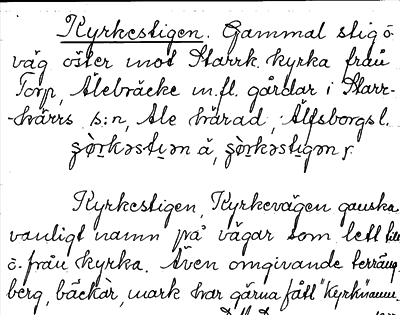 Kyrkestigen. Gammal stig o.
väg öster mot Starrk. kyrka från
Torp, Älebräcke m.fl. gårdar i Starr-
kärrs s:n, Ale härad, Älfsborgs l.

Kyrkestigen, Kyrkevägen ganska
vanligt namn på vägar som lett till
o. från kyrka. Även omgivande terräng,
berg, bäckar, mark har gärna fått "Kyrk"namn.